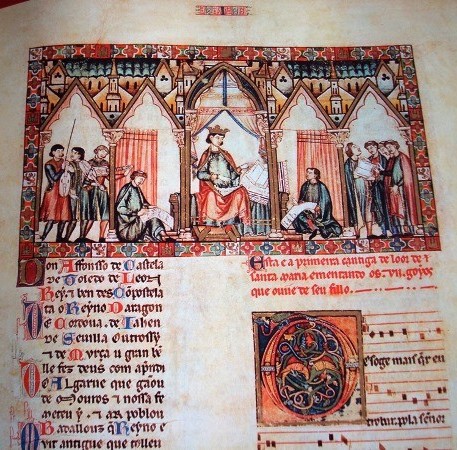 Don Affonsso de Castela
de Toledo de Leon
Rey τ ben des Conpostela
ta o Reyno daragon
De Cordova de Jahen
de Sevilla outrossy
τ de Murça u gran ben
lle fez deus com aprendi
Do Algarve que gãou
de Mouros τ nossa fe
meteu y τ ar poblou
Badallouz q̄ Reyno e
mit antigue que tolleu
Esta e a primeira cantiga de loor de
santa maria ementando os .vii. goyos
que ouve de seu fillo.
Des oge mais qr̄ eu
trobar pla señor